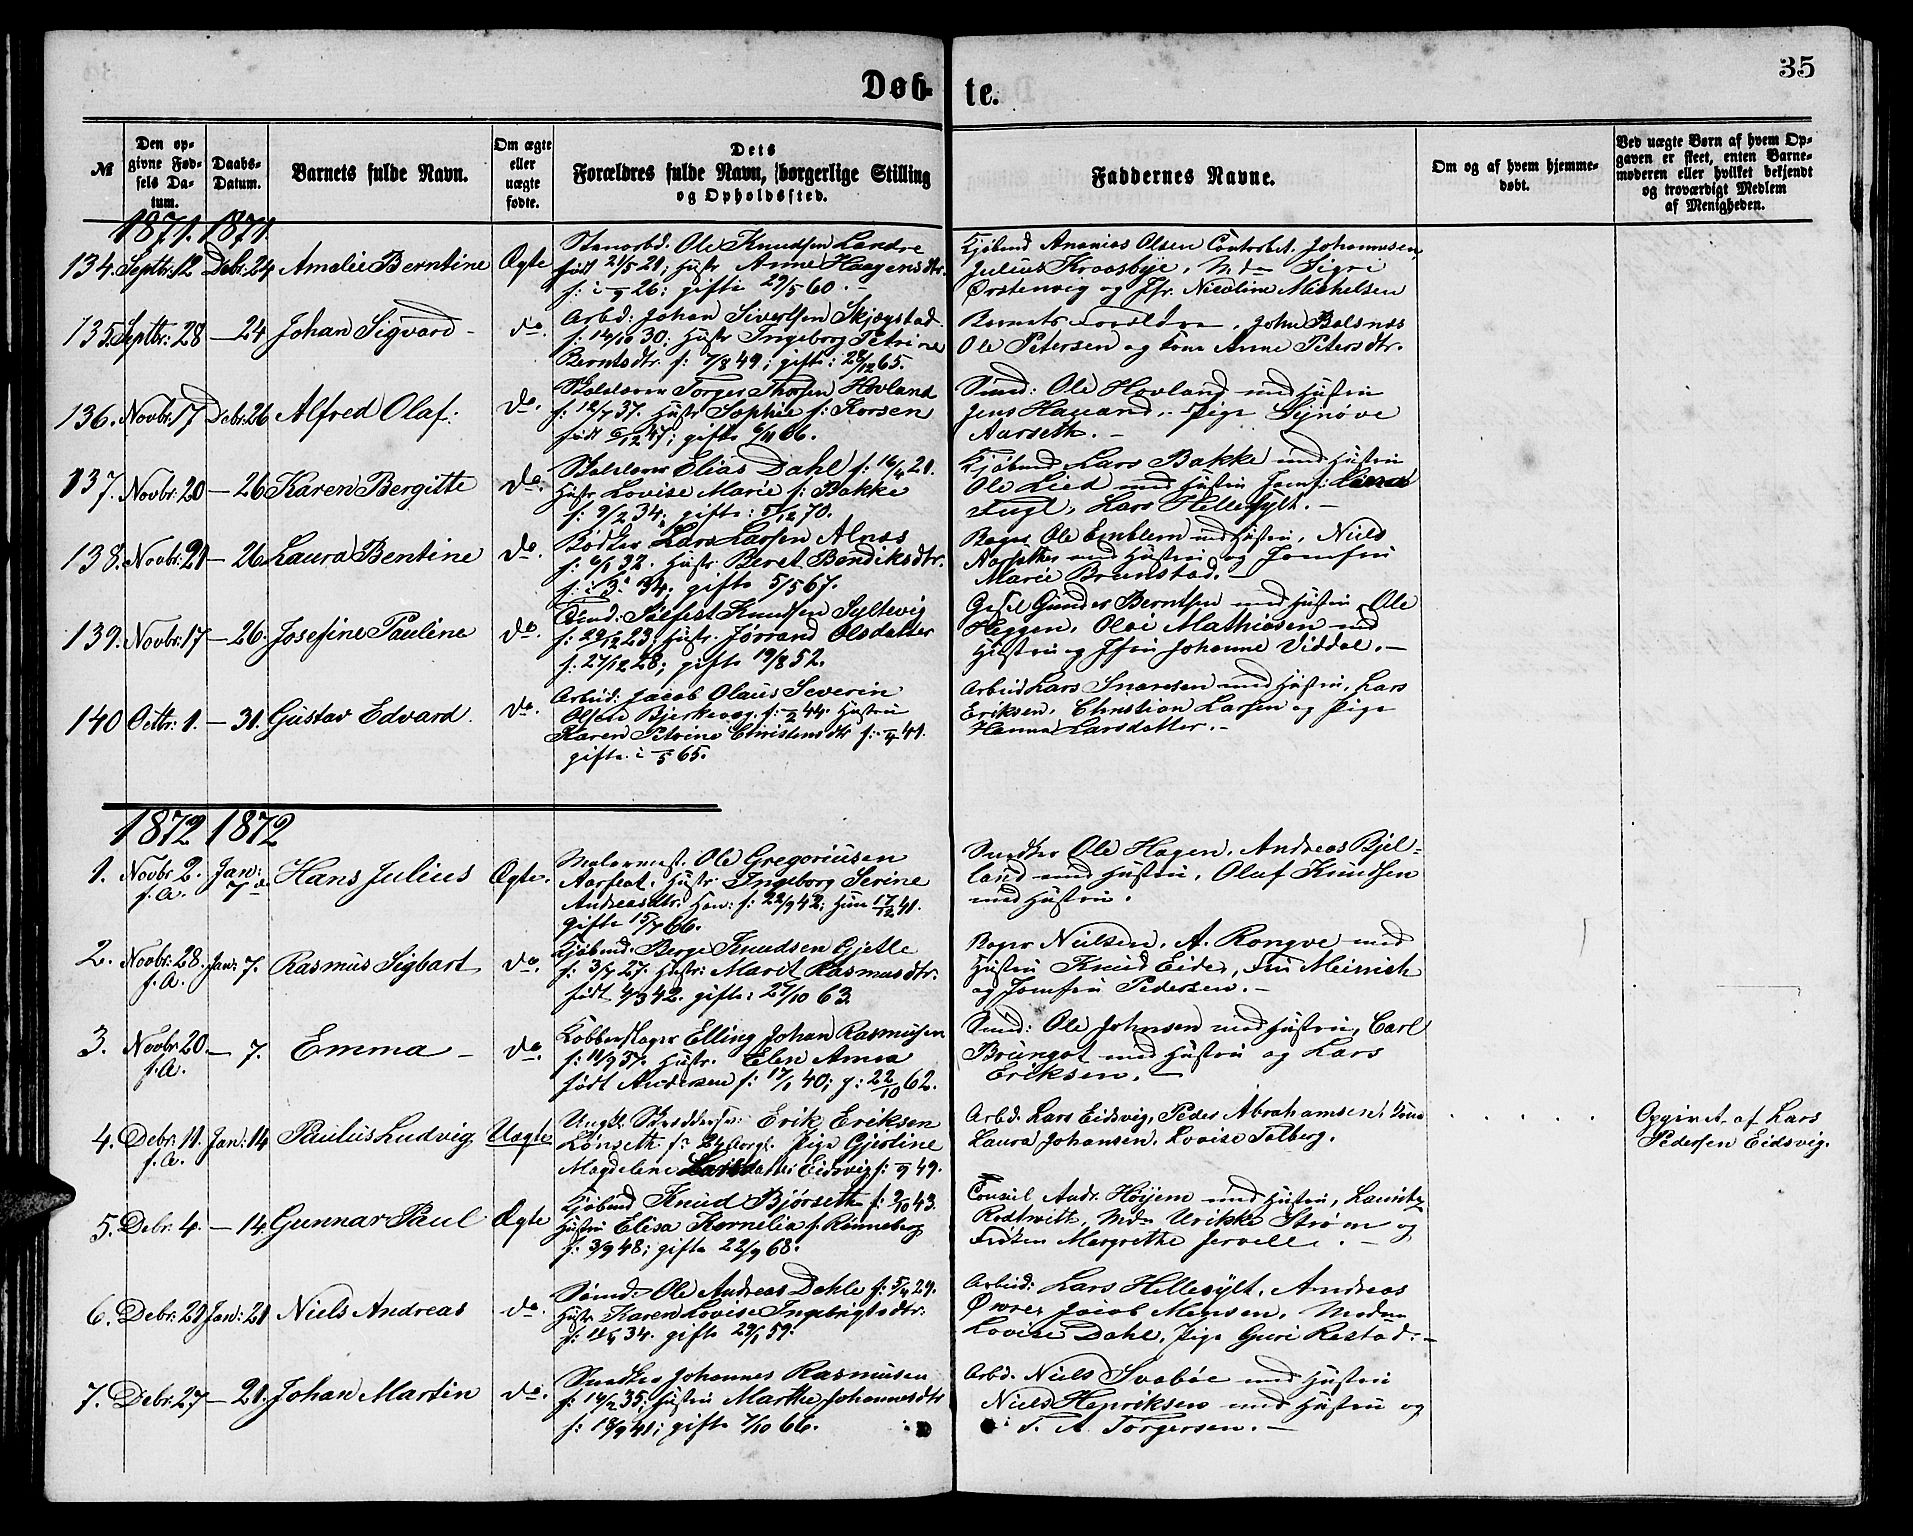 35
Døb- te.
№
Den op-
givne Fød-
sels Da-
tum.
Daabs-
Datum.
Barnets fulde Navn.
Om ægte
eller
uægte
fødte.
Dets
Forældres fulde Navn, borgerlige Stilling
og Opholdssted.
Faddernes Navne.
Om og af hvem hjemme-
døbt.
Ved uægte Børn af hvem Op-
gaven er skeet, enten Barne-
moderen eller hvilket bekjendt
og troværdigt Medlem
af Menigheden.
1871. 1871.
134. Septbr: 12 Debr: 24 Amalie Berntine Ægte
Ole Knudsen Landre
født 21/5 21; Hustr Anne Haagensdtr.
f: i 9 26; gifte 29/5 60.
Kjøbmd Ananias Olsen Johannesen,
Julius Kroosbye, Mdm Sigri
Ørstenvig og Jfr. Nicoline Michelsen
135. Septbr: 28 — 24 Johan Sigvard do.
Arbd: Johan Sivertsen Skjegstad
f: 14/10 30; Hustr Ingeborg Petrine
Berntsdtr f: 7/8 49; gifte: 28/12 65.
Barnets Forældre, John Balsnæs
Ole Petersen og Kone Anne Petersdtr.
136. Novbr: 17 Debr: 26 Alfred Olaf: do.
Skolelærer Torger Thorsen Hovland
f: 12/7 37. Hustr Sophie f: Korsen
født 6/12 47; gifte 6/11 66.
Smed: Ole Hovland med Hustru
Jens Hageand, Pige Synøve
Aarseth.
137. Novbr: 20 — 26 Karen Bergitte do.
Skolelærer Elias Dahl f: 16/4 21.
Hustr Lovise Marie f: Bakke
f: 9/2 34; gifte: 5/12 70.
Kjøbmd Lars Bakke med Hustru
Ole Lied med Hustru Jomf: Lina
Fugl, Lars Hellesylt.
138. Novbr: 21 — 26 Laura Bentine do.
Bødker Lars Larsen Alnæs
f: 6/1 32. Hustr. Beret Bendiksdtr.
f: i 3 34; gifte 5/5 67.
Bager Ole Emblem med Hustru, Niels
med Hustru og Jomfru
Marie Brunstad.
139. Novbr: 17 — 26 Josefine Pauline do.
Knudsen Syltevig
f: 29/12 23; Hustr. Jørand Olsdatter
f: 27/12 28; gifte 19/8 52.
Gunder Berntsen med Hustru, Ole
Heggen, Olai Mathiesen med
Hustru og Jfru Johanne Viddal.
140 Octbr: 1. — 31. Gustav Edvard. do.
Arbeid: Jacob Olaus Severin
Olsen Bjerkevog f: 2 44. Hustru
Karen Petrine Christensdtr f: 4 41.
gifte i 5 65.
Arbeid Lars Snaresen med Hustru, Lars
Eriksen, Christian Larsen og Pige
Hanna Larsdatter.
1872 1872
1. Novbr 2. f. A. Jan: 7de Hans Julius Ægte.
Malermest. Ole Gregoriusen
Aarseth. Hustr: Ingeborg Serine
Andreasdtr. Han: f: 22/9 42; Hun 17/12 41.
gifte 15/7 66.
Snedker Ole Hagen, Andreas Bjel-
land med Hustru, Oluf Knudsen
med Hustru.
2. Novbr: 28. f. A. Jan: 7. Rasmus Sigbart do.
Kjøbmd. Berge Knudsen Gjelle
f: 3/7 27. Hustr: Marit Rasmusdtr:
født 4/3 42. gifte: 27/10 63.
Bager Nielsen, A. Rongve med
Hustru Knud Eider, Fru Meinich
og Jomfru Pedersen.
3. Novbr 20 f. A. — 7. Emma do.
Kobberslager Elling Johan Rasmusen
f: 11/9 37. Hustr. Elen Anna
født Andersen f: 17/1 40; g: 22/10 62.
Smed: Ole Johnsen med Hustru, Carl
Brungot med Hustru og Lars
Eriksen.
4. Debr: 11. f. A. Jan: 14 Paulus Ludvig Uægte
Erik Eriksen
Lønseth f: 24 Pige Gjertine
Magdelene Larsdatter Eidsvig f: 9 49.
Arbd. Lars Eidsvig, Peder Abrahamsen,
Laura Johansen, Lovise Tolberg.
Opgivet af Lars
Pedersen Eidsvig.
5. Debr: 4. — 14. Gunnar Paul Ægte
Kjøbmd Knud Bjørseth f: 2/10 43.
Hustru Elisa Kornelia f: Rønneberg
f: 3/9 48; gifte 22/9 68.
Consul Andr. Høyem med Hustru, Lauritz
Rodtwitt, Mdm Urikke Strøm og
Frøken Margrethe Jervell.
6. Debr: 29 Jan: 21 Niels Andreas do.
Sømd: Ole Andreas Dahle f: 5/4 29.
Hustr Karen Lovise Ingebrigtsdtr:
34. gifte 29/1 59.
Arbeid: Lars Hellesylt, Andreas
Jacob Monsen, Madm
Lovise Dahl, Pige Guri Rastad.
7. Debr: 27 — 21. Johan Martin do.
Snedker Johannes Rasmusen
f: 14/2 35; Hustru Marthe Johannesdtr
f: 18/9 41; gifte 7/10 66.
Arbd. Niels Svabøe med Hustru
Niels Henriksen med Hustru og
T. A. Torgersen.